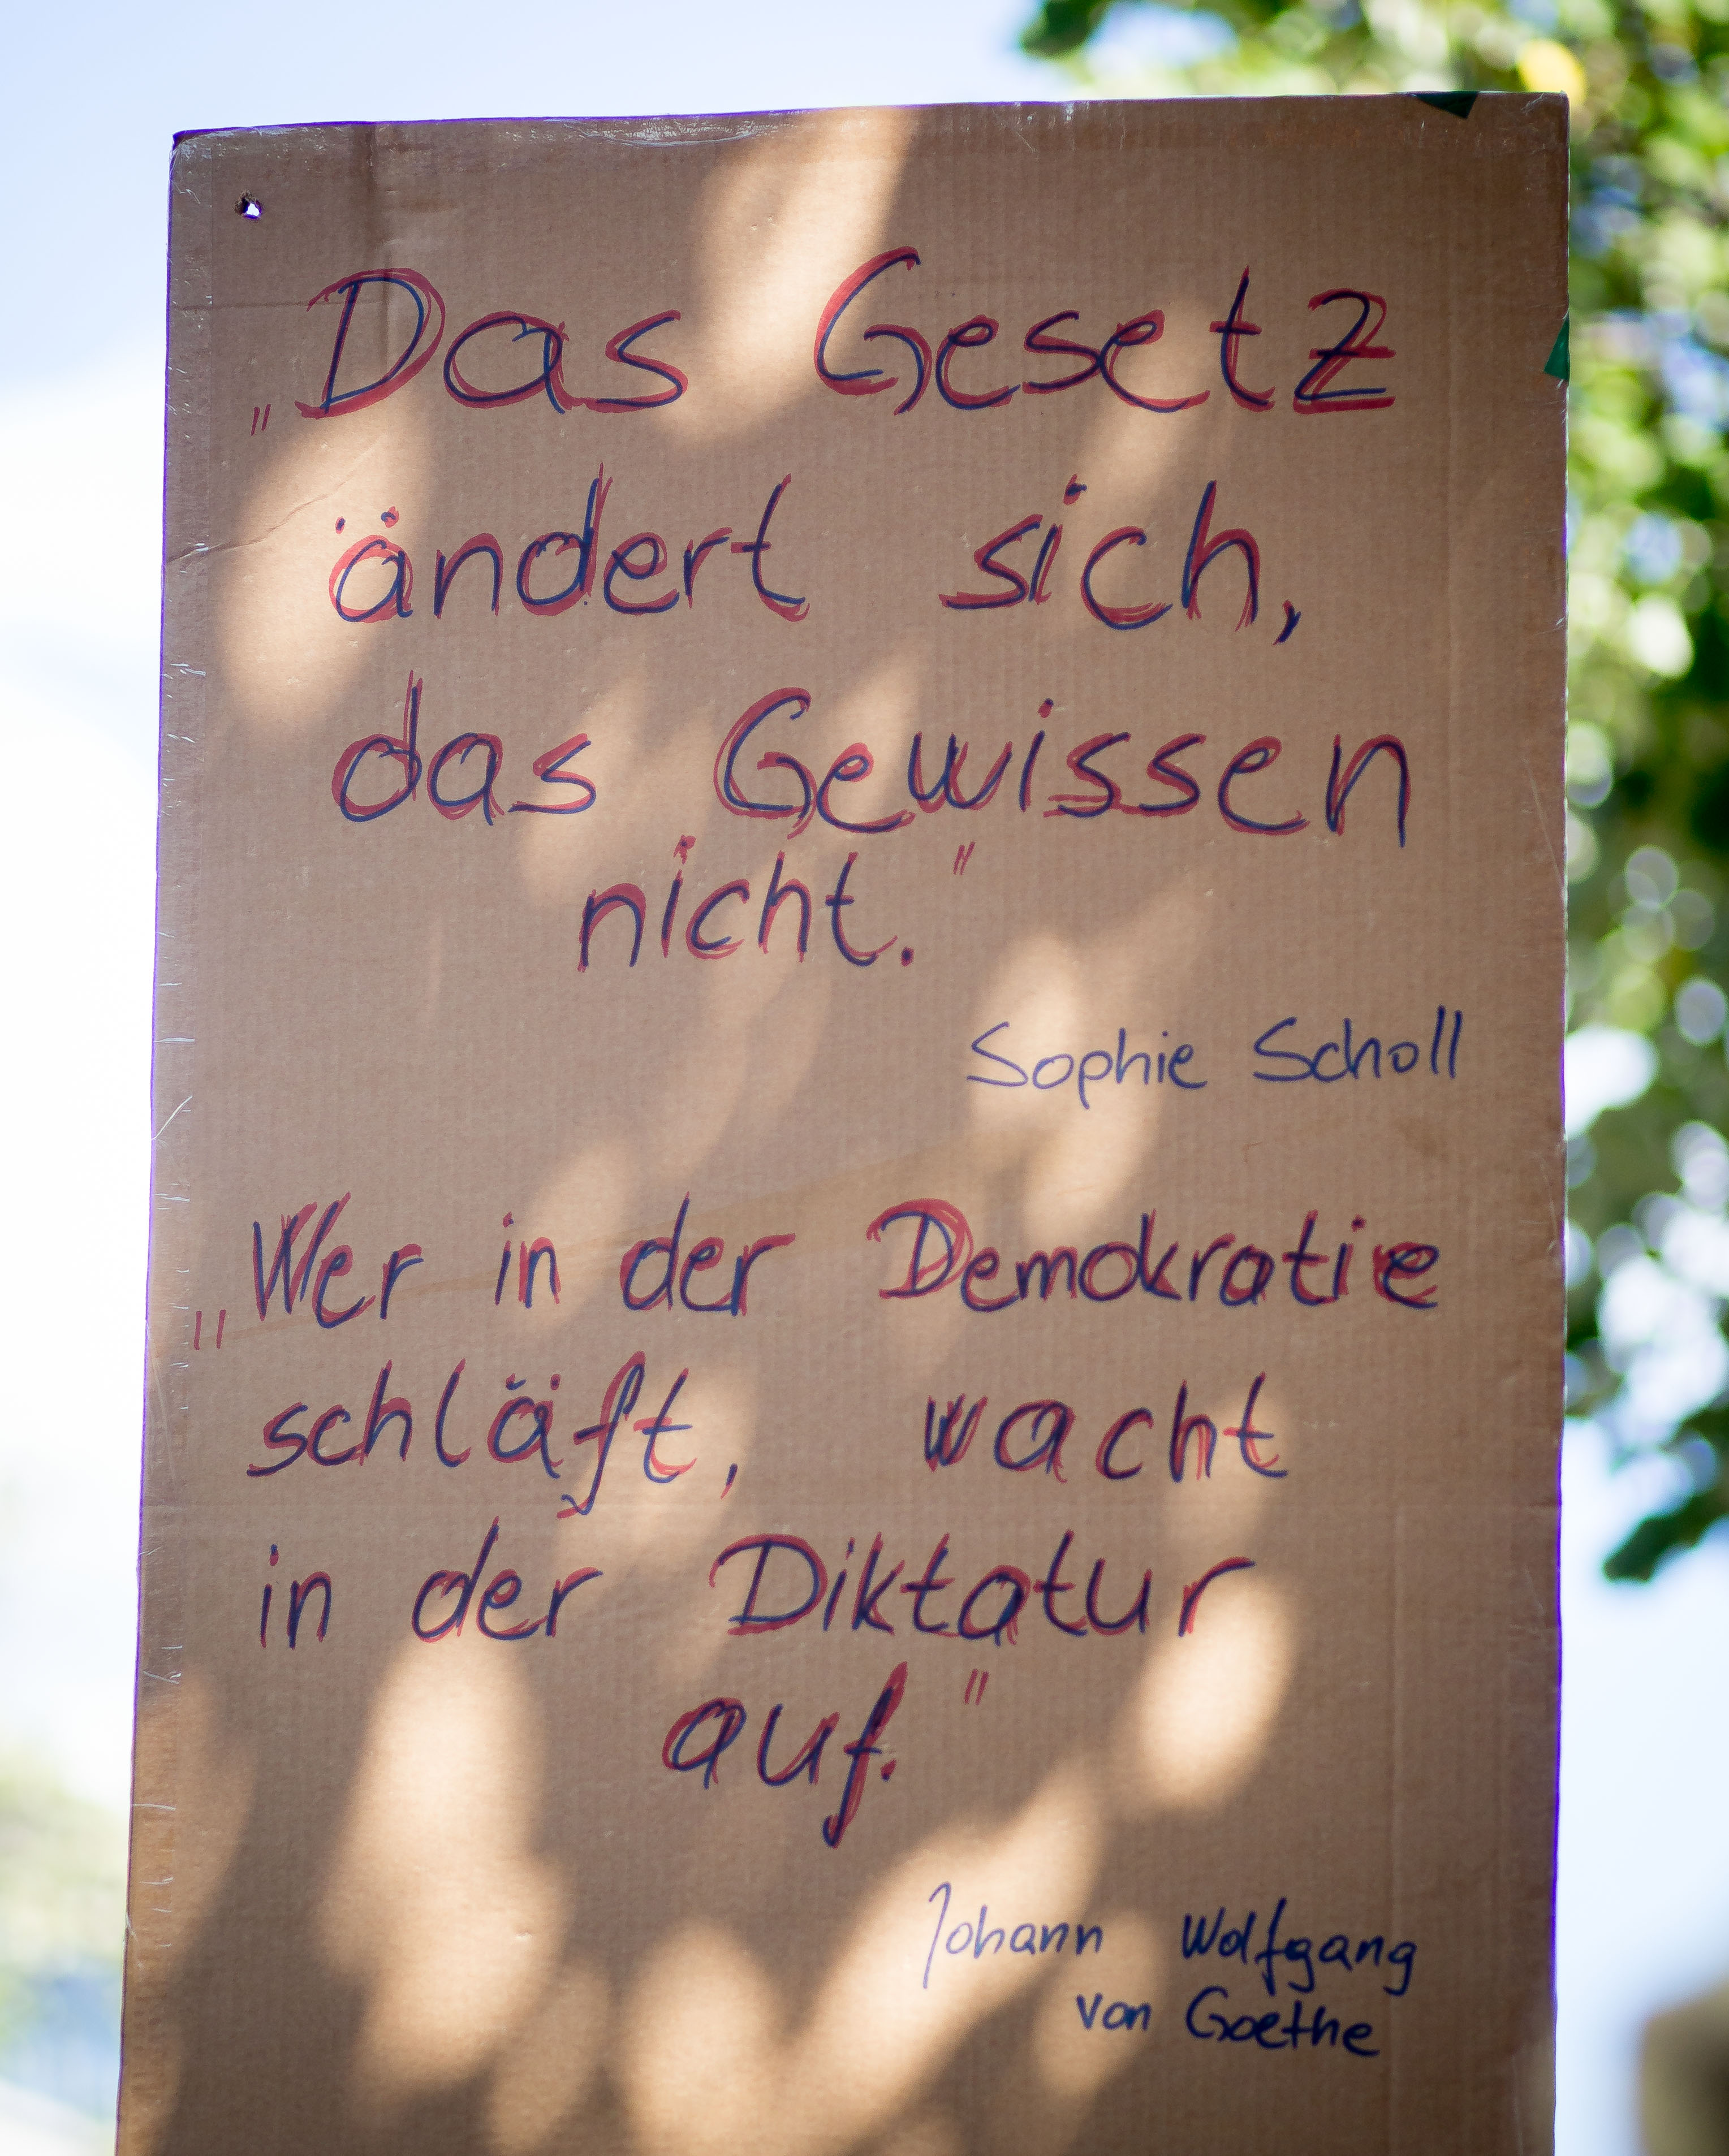 „Das Gesetz
ändert sich,
das Gewissen
nicht."
Sophie Scholl
„Wer in der Demokratie
schläft, wacht
in der Diktatur
auf."
Johann Wolfgang
von Goethe